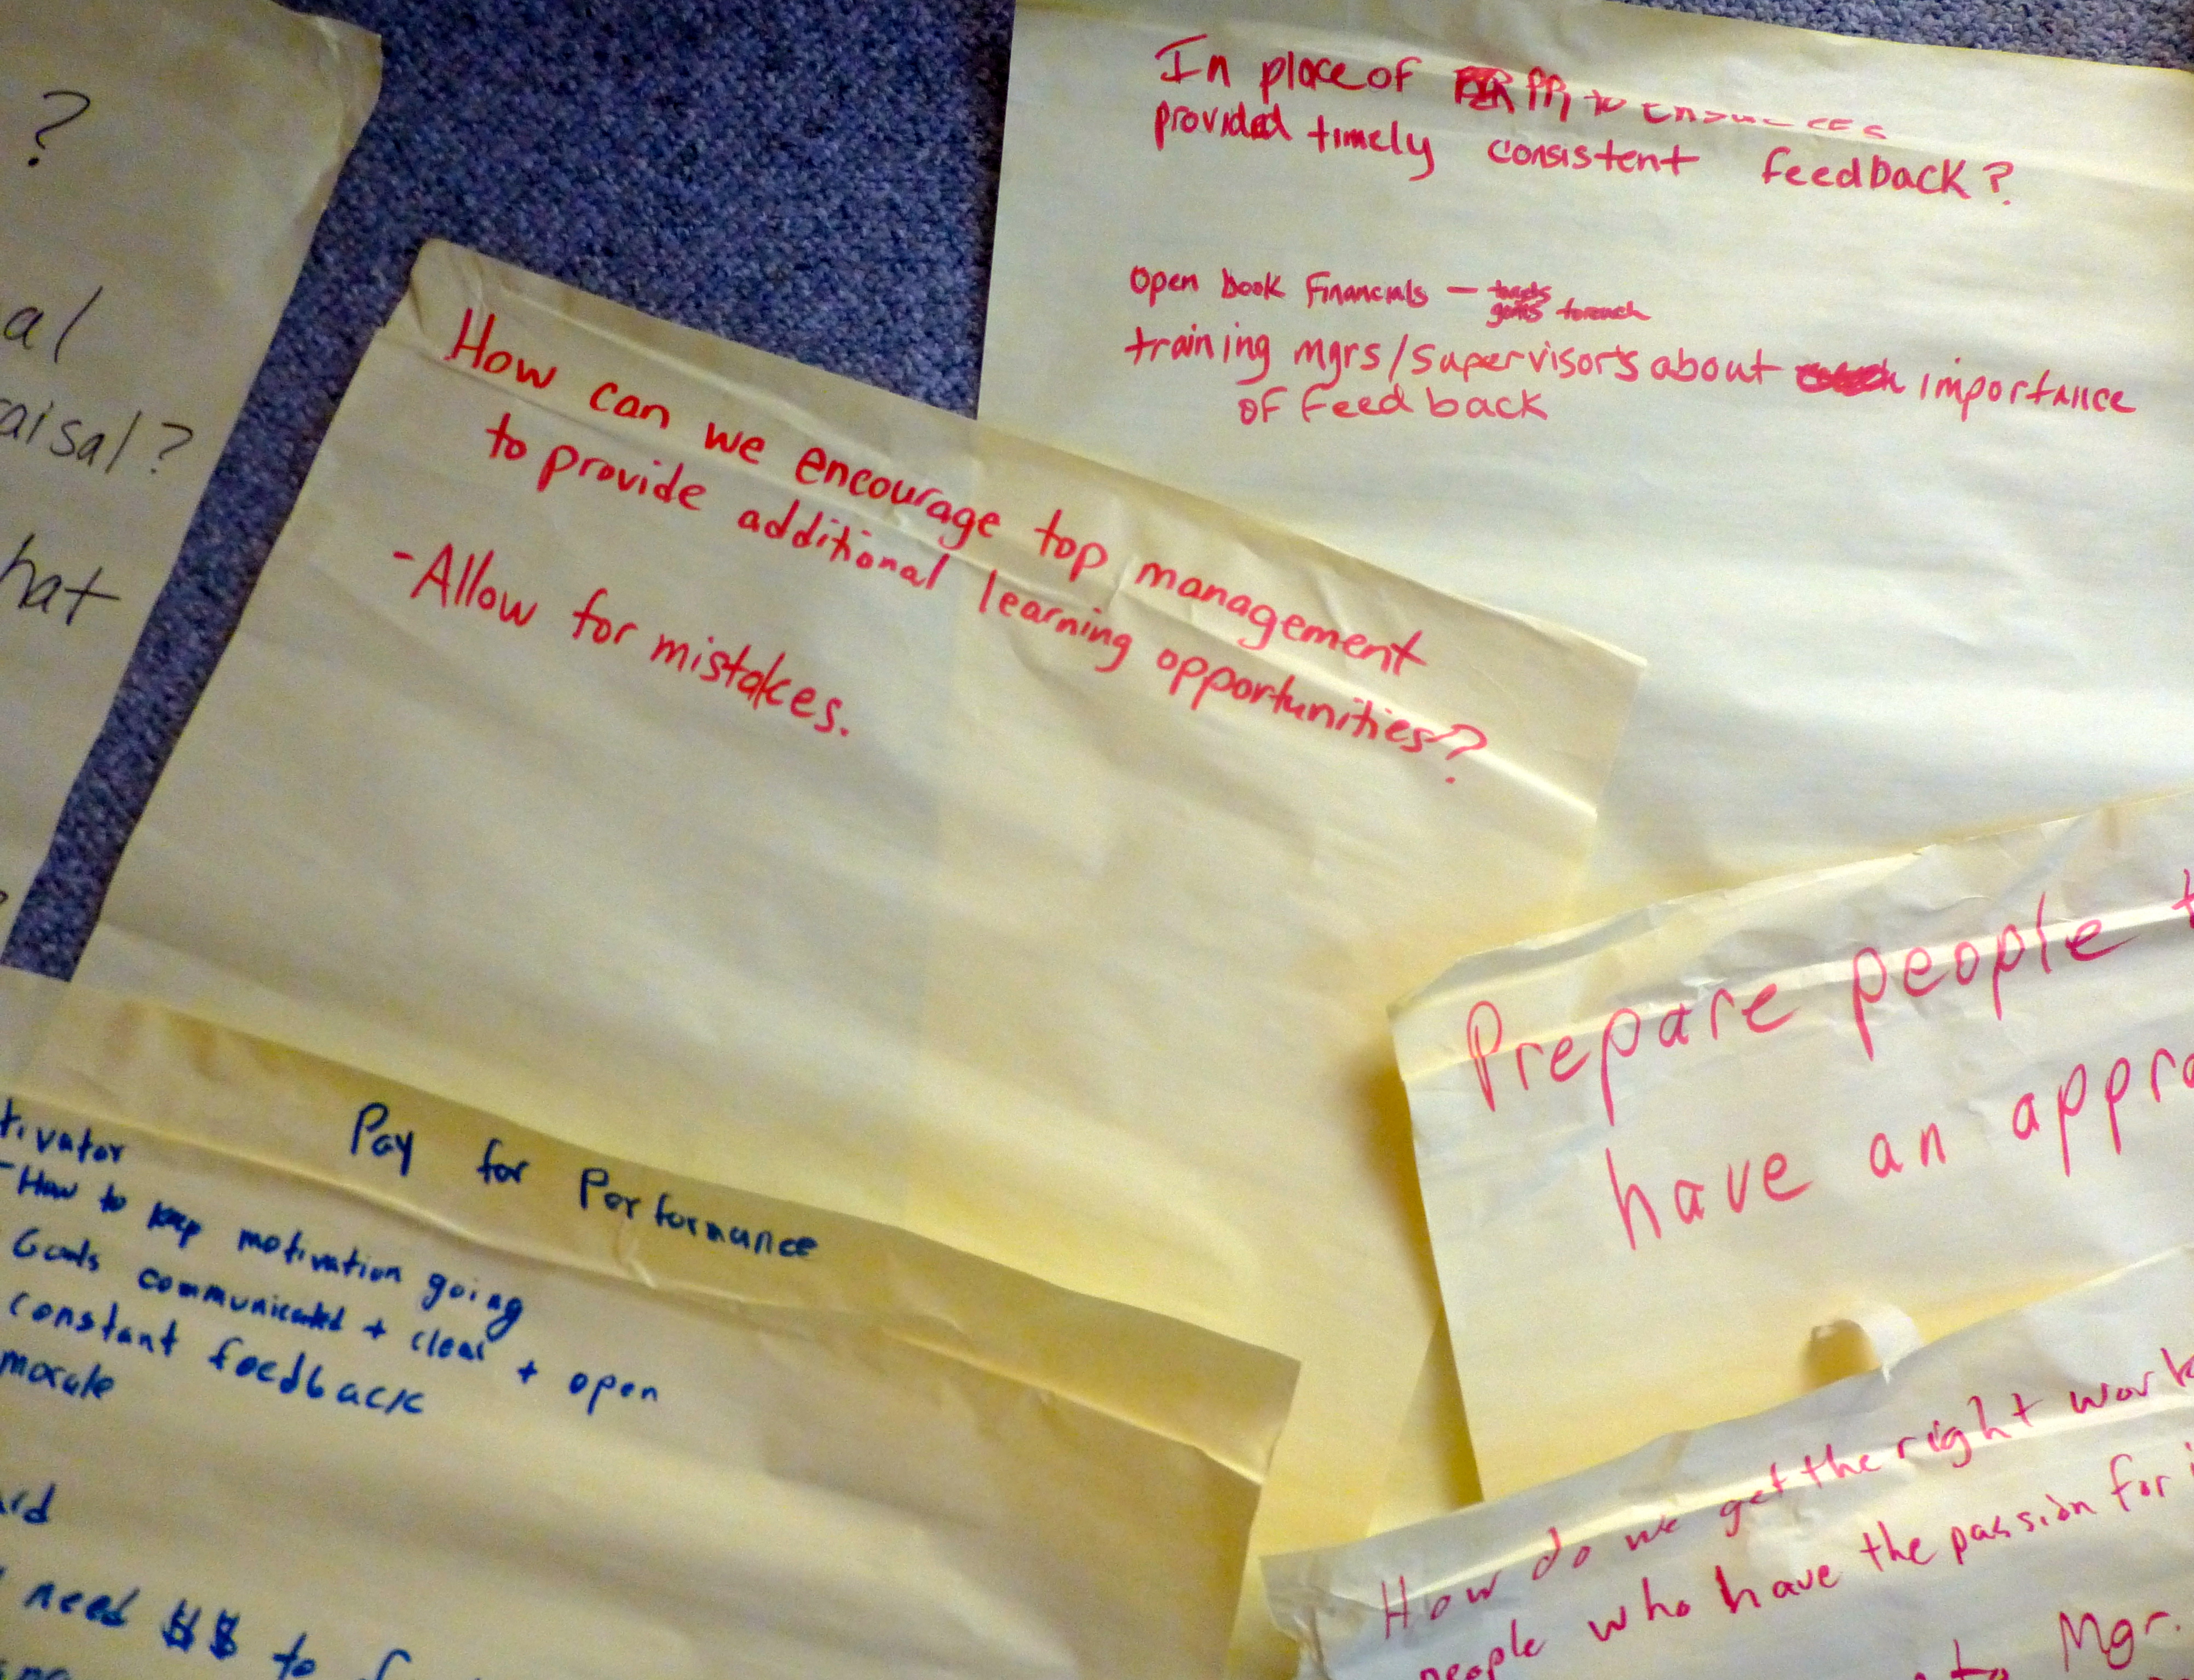 ?
al
aisal?
hat
In place of PR to
provided timely consistent feedback?
open book Financials –
training mgrs/supervisors about importance
of feedback
How can we encourage top management
to provide additional learning opportunities?
-Allow for mistakes.
Prepare people t
have an appra
Pay for Performance
tivator
-How to keep motivation going
Goals communicated + clear + open
constant feedback
morale
ard
need $$ to
How do we get the right work
people who have the passion for i
to Mgr.